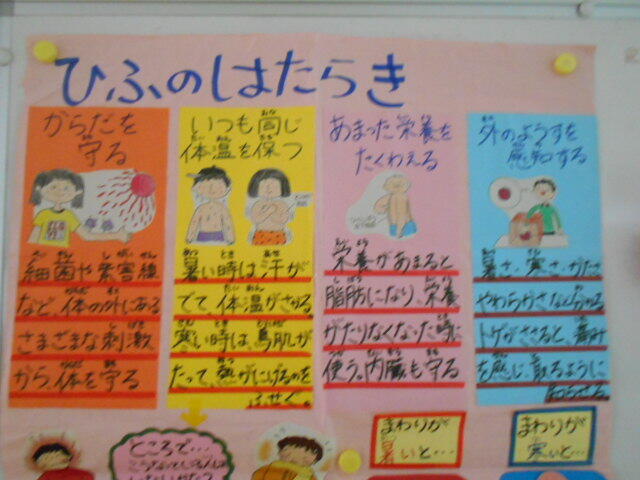 ひふのはたらき
からだを
守る
細菌や紫害線
など、体の外にある
さまざまな刺激
から、体を守る
いつも同じ
体温を保つ
暑い時は汗が
でて、体温がさがる
寒い時は、鳥肌が
たって、熱がにげるのを
ふせぐ。
あまった栄養を
たくわえる
栄養があまると
脂肪になり、栄養
がたりなくなった時に
使う。内臓も守る
外のようすを
感知する
暑さ、寒さ、かたさ
やわらかさなど分かる
トゲがささると、痛み
を感じ、取るように
知らせる
ところで…
こうなっている人は
いないかな?
まわりが
いと…
まわりが
寒いと…